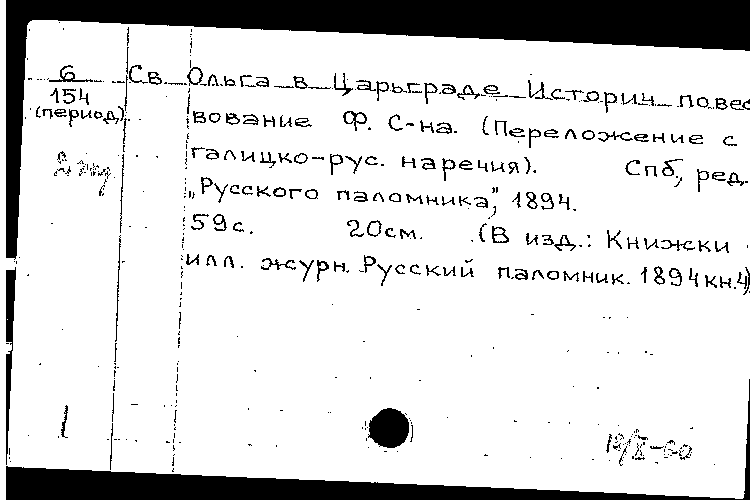 6 Св. Ольга в Царьграде Историч повес
154
(период)
вование Ф. С-на. (Переложение с
галицко-рус. наречия). Спб., ред.
„Русского паломника", 1894.
59с. 20см. (В изд.: Книжки
илл. журн. Русский паломник. 1894 кн.4)
1